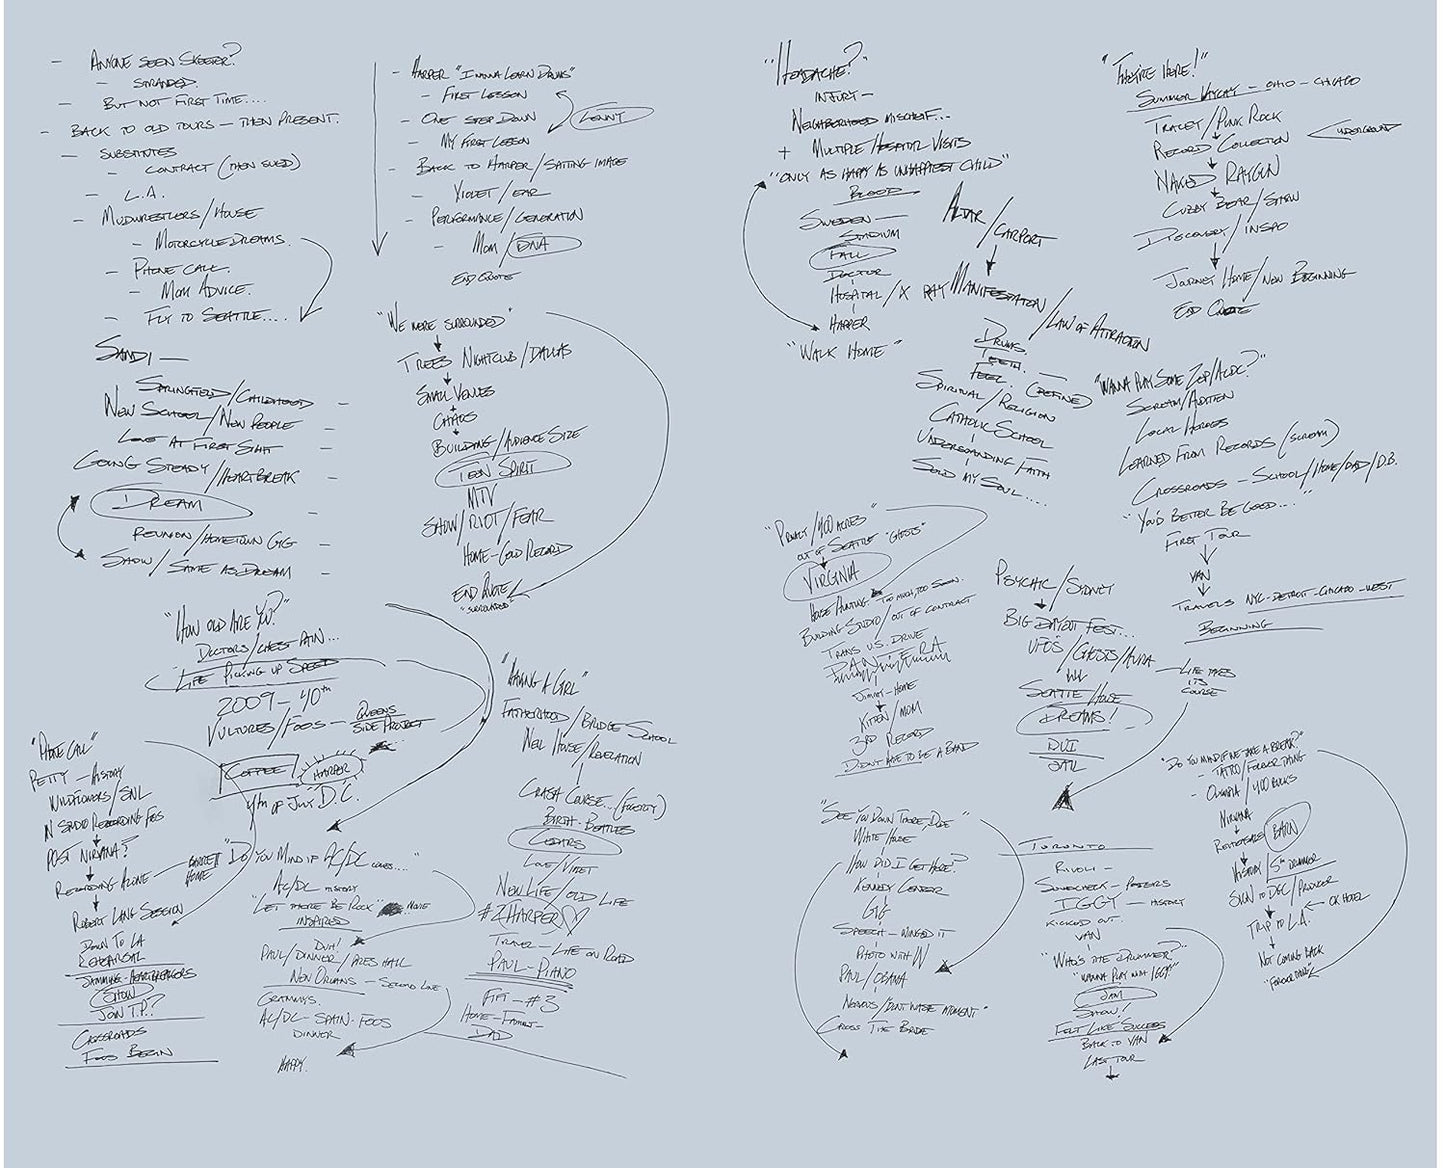 - Anyone seen Skeeter?
- Stranded.
- But not first time....
- Back to old tours — then present.
- Substitutes
- Contract (then sued)
- L.A.
- Mudwrestlers/House
- Motorcycle Dreams.
- Phone call.
- Mom Advice.
- Fly to Seattle....
Sandi —
Springfield/Childhood
New School/New People —
Love at First Sight —
Going Steady/Heartbreak —
Dream —
Reunion/Hometown Gig —
Show/Same as Dream —
- Harper "I wanna learn drums"
- First Lesson
- One Step Down
- My First Lesson
Lenny
- Back to Harper/Satting Image
- Violet/Ear
- Performance/Generation
- Mom/DNA
End Quote
"We were surrounded"
Trees Nightclub/Dallas
Small Venues
Chaos
Building/Audience Size
Teen Spirit
MTV
Show/Riot/Fear
Home-Gold Record
End Quote
"Surrounded"
"How old are you?"
Doctors/Chest Pain...
Life Picking up Speed
2009 - 40th
Vultures/Foos — Queens Side Project
Coffee
Harper
4th of July D.C.
"Phone Call"
Petty — History
Wildflowers/SNL
In Studio Recording Foos
Post Nirvana?
Recording Alone — Barrett Home
Robert Lang Session
Down to LA
Rehearsal
Jamming-Heartbreakers
Show
Join T.P.?
Crossroads
Foos Begin
"Do you mind if AC/DC comes...."
AC/DC History
"Let There Be Rock" Movie
Inspired
Duh!
Paul/Dinner/Pres Hall
New Orleans — Second Line
Grammys.
AC/DC-Spain-Foos
Dinner
Happy.
"Having a Girl"
Fatherhood/Bridge School
New House/Revelation
Crash Course... (Fogerty)
Birth-Beatles
Cedars
Love/Violet
New Life/Old Life
#2 Harper
Travel-Life on Road
Paul-Piano
Fiji-#3
Home-Family-
Dad
"Headache?"
Injury —
Neighborhood Mischief...
+ Multiple Hospital Visits
"Only as happy as unhappiest child"
Blood
Sweden —
Stadium
Fall
Doctor
Hospital/X Ray
Harper
"Walk Home"
Altar/Carport
Manifestation/Law of Attraction
Drums.
Teeth. —
Feel. (Refined)
Spiritual/Religion
Catholic School
Understanding Faith
Sold my soul....
"They're Here!"
Summer Vaycay — Ohio - Chicago
Tracey/Punk Rock
Record Collection
Underground
Naked Raygun
Cubby Bear/Show
Discovery/Inspo
Journey Home/New Beginning
End Quote
"Wanna play some Zep/AC/DC?"
Scream/Audition
Local Heroes
Learned from Records (Scream)
Crossroads — School/Home/Dad/D.B.
"You'd better be good...."
First Tour
Van
Travels NYC-Detroit-Chicago-West
Beginning
"Privacy/400 Acres"
out of Seattle "Ghosts"
Virginia
House Hunting - Too much, too soon.
Building Studio/out of contract
Trans U.S. Drive
Pantera
Jimmy-Home
Kitten/Mom
3rd Record
Didn't have to be a band
Psychic/Sydney
Big Day Out Fest...
UFO's/Ghosts/Aura
Seattle/House
Dreams!
DUI
Jail
Life takes its course
"See you down there, Dude"
White House
How did I get here?
Kennedy Center
Gig
Speech — winged it
Photo with W
Paul/Obama
Nervous/"Don't waste moment"
Cross the Bridge
Toronto
Rivoli —
Soundcheck — Posters
Iggy — History
Kicked out.
Van
"Who's the drummer?"
"Wanna play with Iggy?"
Jam
Show!
Felt like "Success"
Back to van
Last Tour
"Do you mind if we take a break?"
- Tattoo/Forever Thing
- Olympia/400 Bucks
Nirvana
Rehearsals Barn
History/5th Drummer
Sign to DGC/Producer
Trip to L.A. OK Hotel
Not coming back
"Foreverthing"